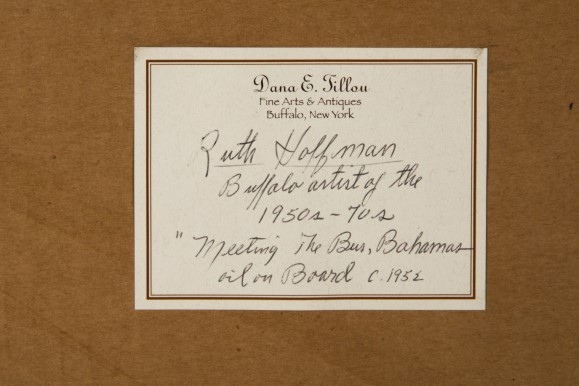 Dana E. Tillou
Fine Arts & Antiques
Buffalo, New York
Ruth Hoffman
Buffalo artist of the
1950s - 70s
"Meeting The Bus, Bahamas
oil on Board c. 1952